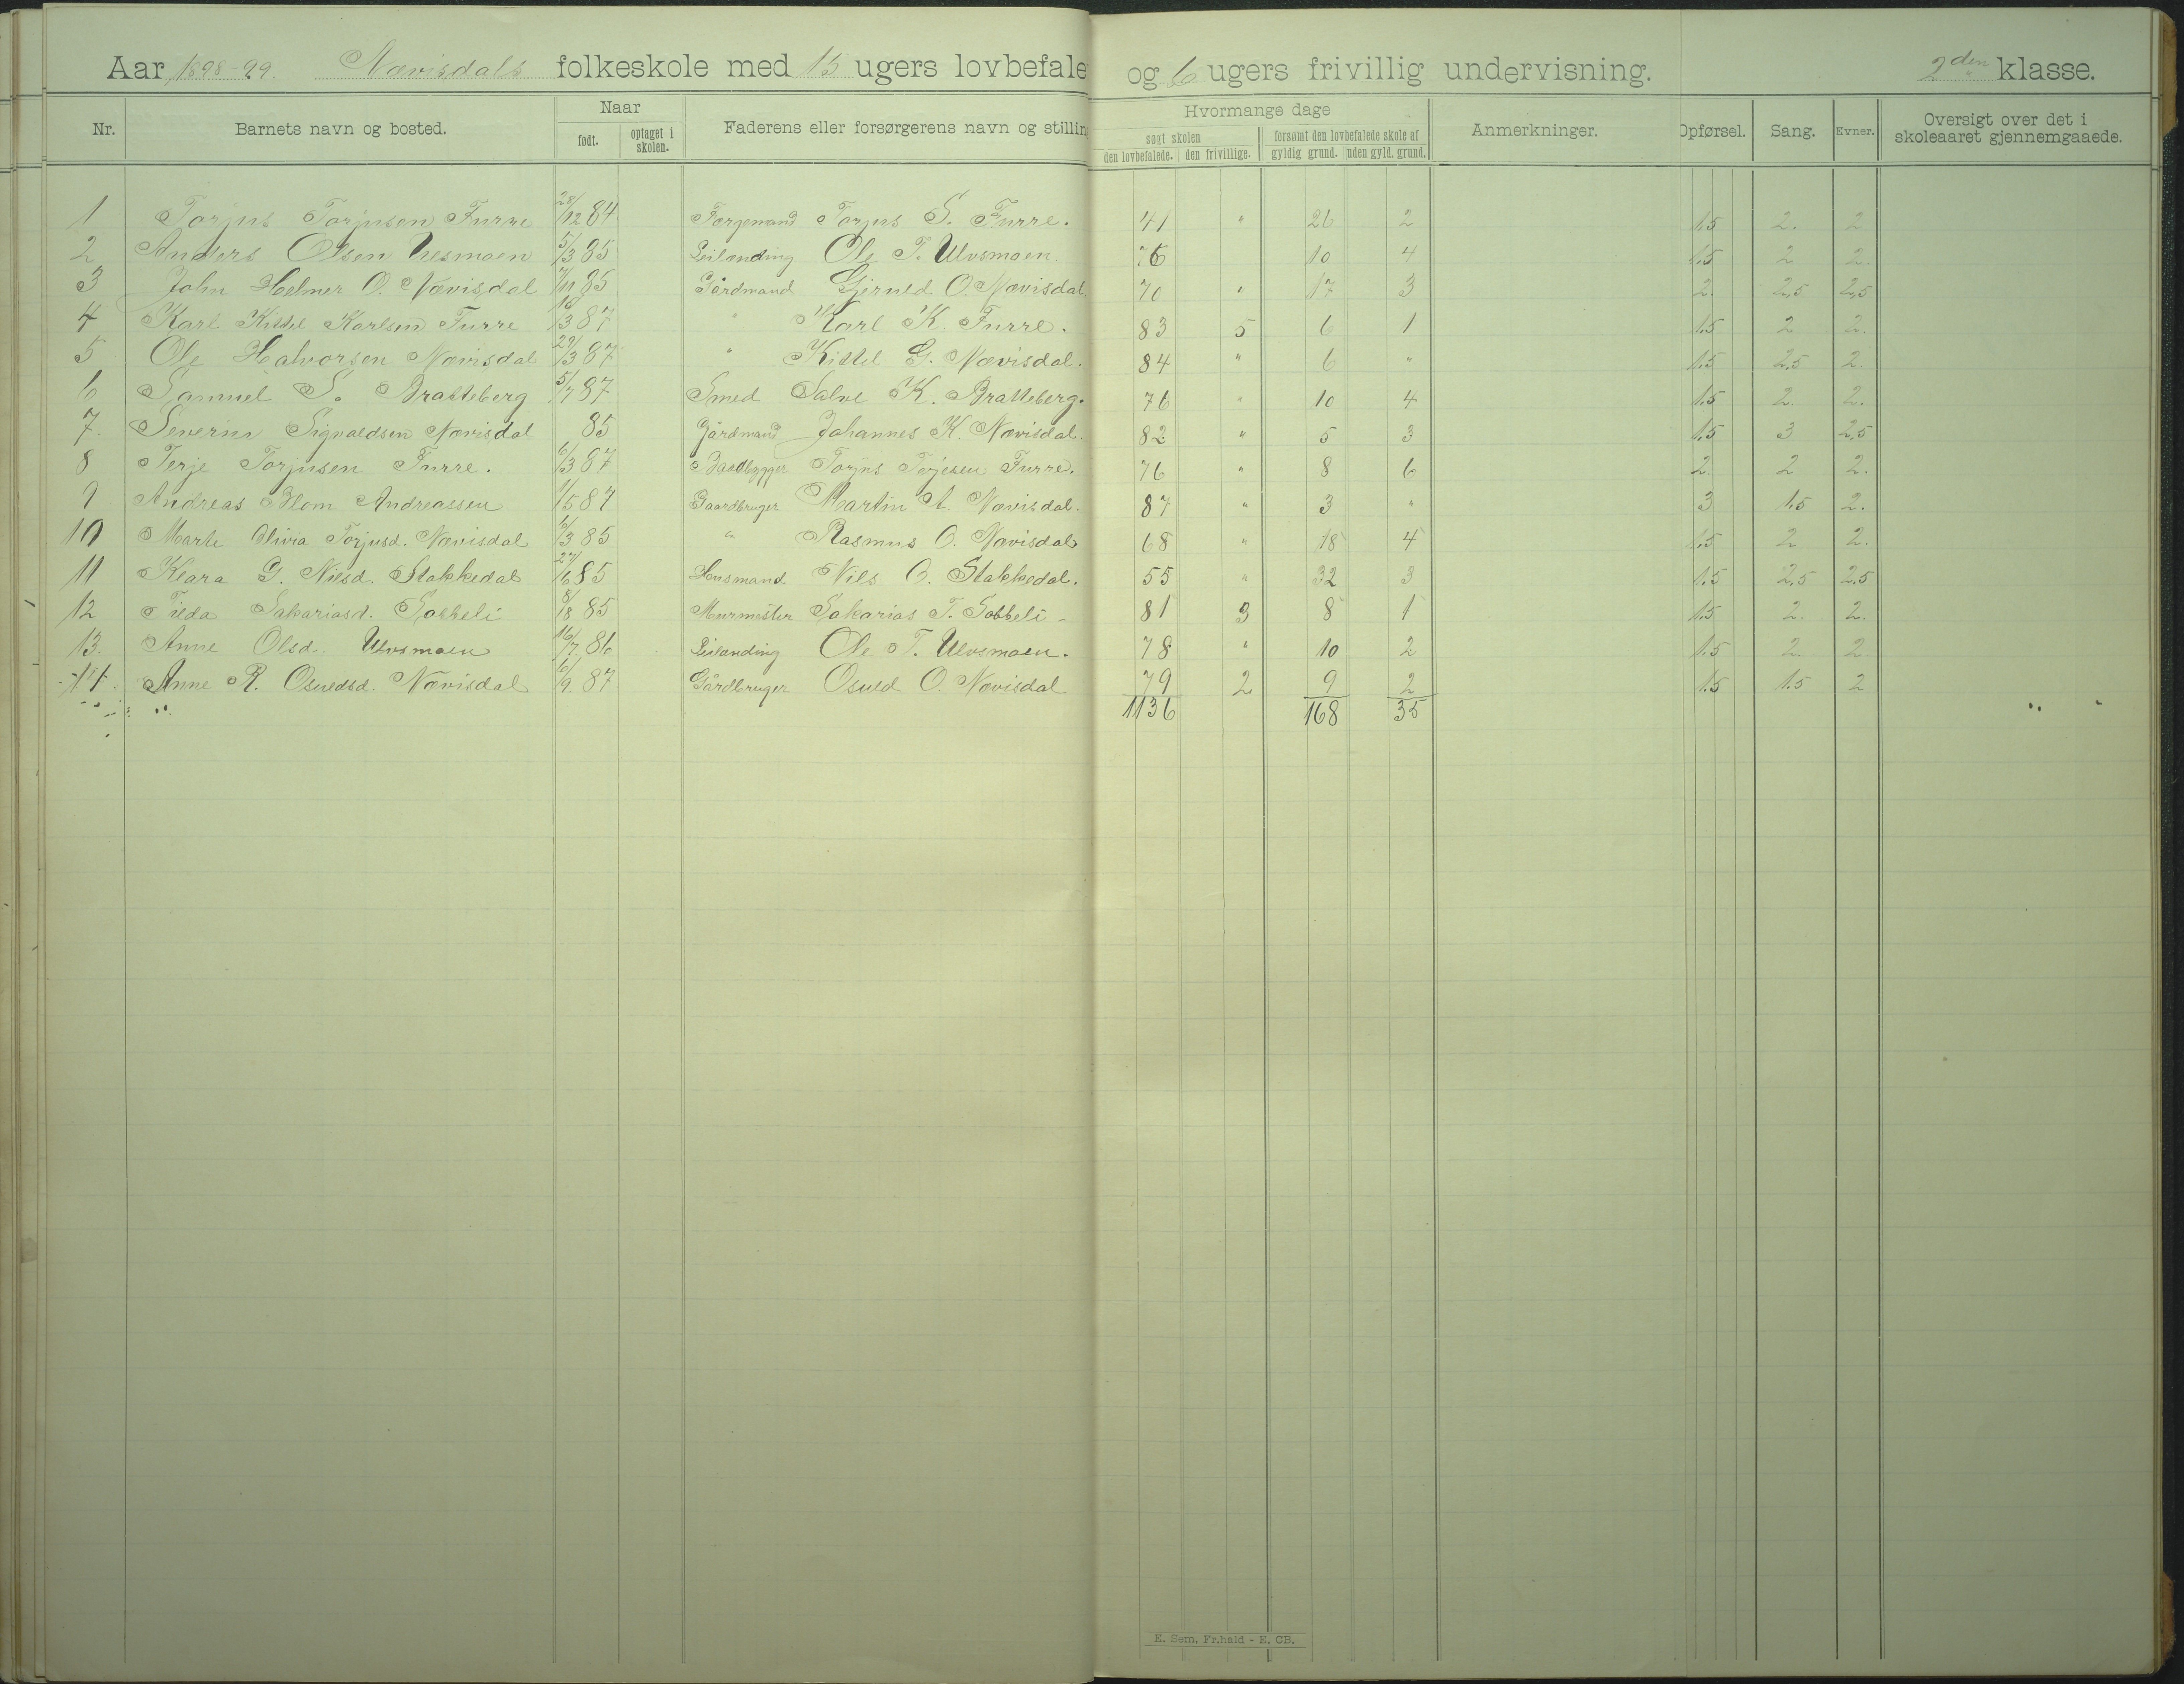 Aar 1898-99. Nævisdals folkeskole med 15 ugers lovbefale og 6 ugers frivillig undervisning. 2den klasse.
Nr. Barnets navn og bosted. Naar Faderens eller forsørgerens navn og stillin Hvormange dage Anmerkninger. Opførsel. Sang. Evner. Oversigt over det i skoleaaret gjennemgaaede.
født. optaget i skolen. søgt skolen forsømt den lovbefalede skole af
den lovbefalede. den frivillige. gyldig grund. uden gyld. grund.
1 Torjus Torjusen Furre 28/12 84 Torjus S. Furre. 41 " 26 2 1.5 2. 2
2 Anders Olsen 5/3 85 Leilænding Ole T. Ulvsmoen. 76 10 4 1.5 2 2.
3 John Helmer O. Nævisdal 7/11 85 Gårdmand O. Nævisdal 70 " 17 3 2. 2,5 2,5
4 Karl Kittel Karlsen Furre 16/3 87 " Karl K. Furre. 83 5 6 1 1.5 2 2.
5 Ole Halvorsen Nævisdal 29/3 87 " Kittel G. Nævisdal. 84 " 6 " 1.5 2,5 2.
6 Samuel S. Bratteberg 5/7 87 Smed Salve K. Bratteberg. 76 " 10 4 1.5 2. 2.
7. Severin Sigvaldsen Nævisdal 85 Gårdmand Johannes K. Nævisdal. 82 " 5 3 1.5 3 2,5
8 Terje Torjusen Furre. 6/3 87 Torjus Terjesen Furre. 76 " 8 6 2. 2 2.
9 Andreas Blom Andreassen 1/5 87 Gaardbruger Martin A. Nævisdal. 87 " 3 " 3 1.5 2.
10 Marte Olivia Torjusd. Nævisdal 6/3 85 " Rasmus O. Nævisdal 68 " 18 4 1.5 2 2.
11 Klara G. Nilsd. Stakkedal 27/6 85 Husmand Nils O. Stakkedal. 55 " 32 3 1.5 2.5 2.5
12 Tilda Sakariasd. Sobbeli 8/18 85 Murmester Sakarias T. Sobbeli - 81 3 8 1 1.5 2. 2.
13. Anne Olsd. Ulvsmoen 16/7. 86 Leilænding Ole T. Ulvsmoen. 78 " 10 2 1.5 2. 2
14. Anne R. Osuldsd. Nævisdal 6/9. 87 Gårdbruger Osuld O. Nævisdal 79 2 9 2 1.5 1.5 2
1136 168 35
E. Sem, Fr.hald - E. CB.